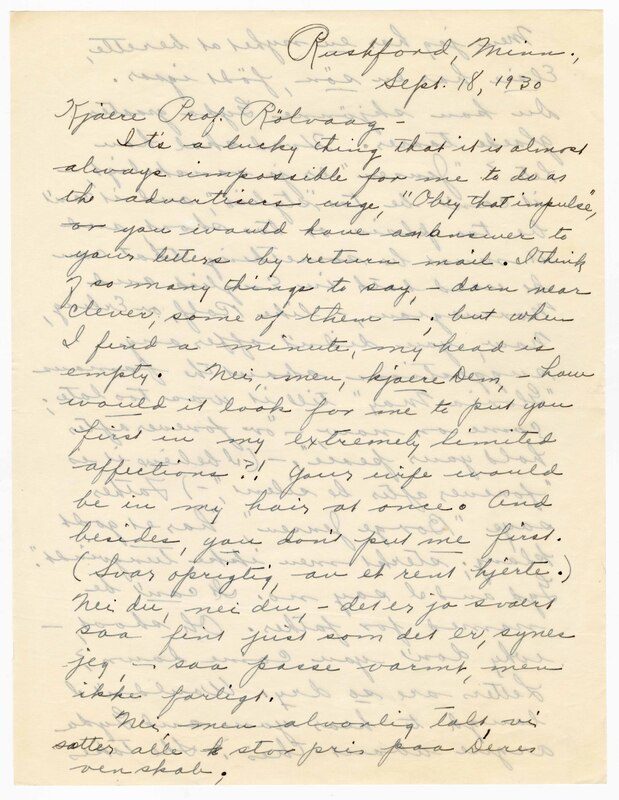 Rushford, Minn.,
Sept. 18, 1930
Kjaere Prof. Rölvaag –
It's a lucky thing that it is almost
always impossible for me to do as
the advertisers urge, "Obey that impulse",
or you would have an answer to
your letters by return mail. I think
of so many things to say, – darn near
clever, some of them –; but when
I find a minute, my head is
empty. Nei, men, kjaere Dem, – how
would it look for me to put you
first in my extremely limited
affections?! Your wife would
be in my hair at once. And
besides, you don't put me first.
(Svar oprigtig, av et rent hjerte.)
Nei du, nei du, – det er jo svaert
saa fint just som det er, synes
jeg, – saa passe varmt, men
ikke farligt.
Nei, men alvorlig talt, vi
sætter alle stor pris paa Deres
venskab;